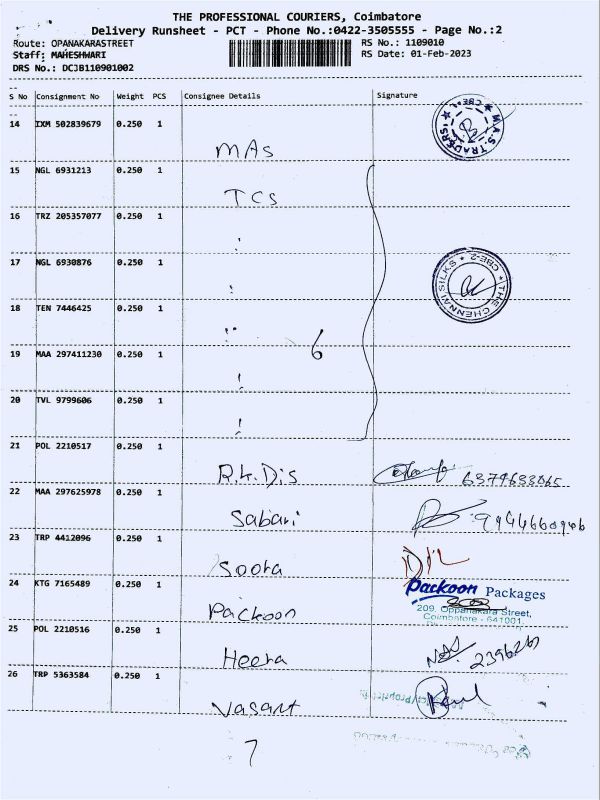 THE PROFESSIONAL COURIERS, Coimbatore
Delivery Runsheet - PCT - Phone No.:0422-3505555 - Page No.:2
Route: OPANAKARASTREET RS No.: 1109010
Staff: MAHESHWARI RS Date: 01-Feb-2023
DRS No.: DCJB110901002
S No Consignment No Weight PCS Consignee Details Signature
14 IXM 502839679 0.250 1
MAS
M.A.S. TRADERS
CBE-1
15 NGL 6931213 0.250 1
TCS
16 TRZ 205357077 0.250 1
17 NGL 6930876 0.250 1
THE CHENNAI SILKS
CBE-2
18 TEN 7446425 0.250 1
6
19 MAA 297411230 0.250 1
20 TVL 9799606 0.250 1
21 POL 2210517 0.250 1
R.K. Dis
22 MAA 297625978 0.250 1
Sabari
23 TRP 4412096 0.250 1
Soora
24 KTG 7165489 0.250 1
Packoon
Packoon Packages
209, Oppanakara Street,
Coimbatore - 641001.
25 POL 2210516 0.250 1
Heera
26 TRP 5363584 0.250 1
Vasant
7